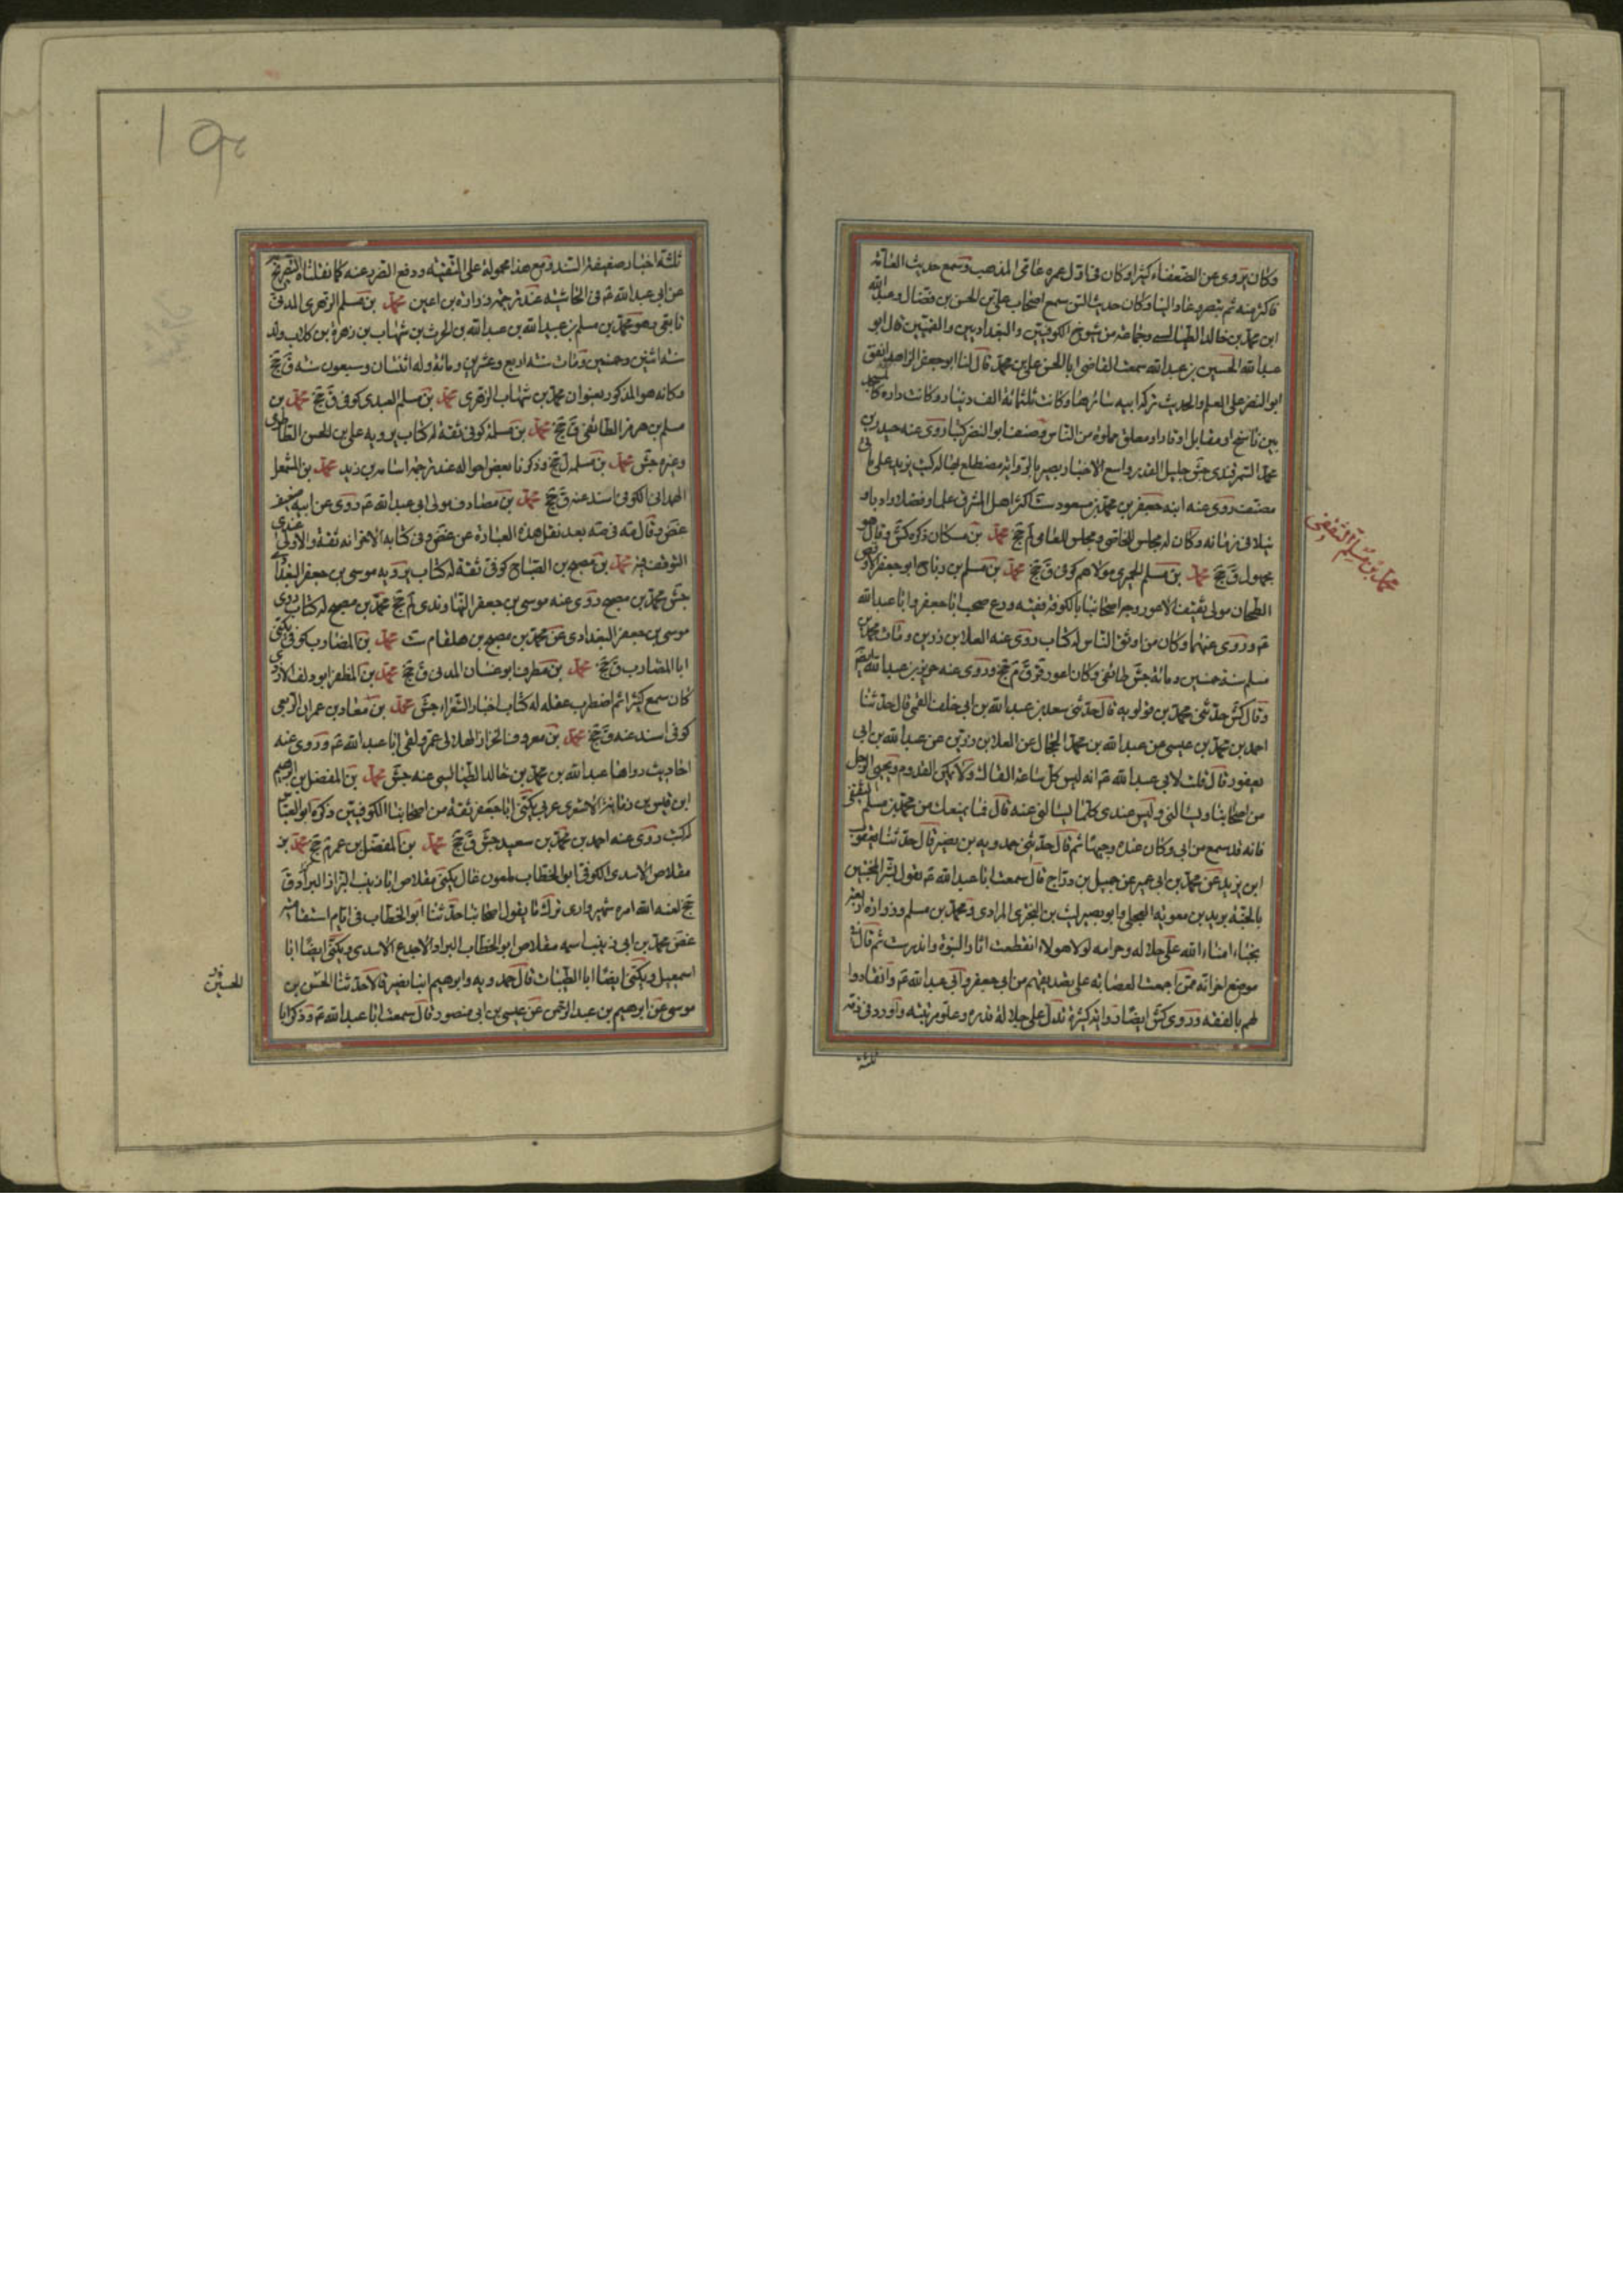 وكان يروى عن الضعفاء كثيرا وكان فى اول عمره عامى المذهب وسمع حديث العامة
فاكثر منه ثم تبصر وعاد الينا وكان حديث السن سمع اصحاب على بن الحسن بن فضال وعبد الله
ابن محمد بن خالد الطيالسى وجماعة من شيوخ الكوفيين والبغداديين والقميين قال ابو
عبد الله الحسين بن عبد الله سمعت القاضى ابا الحسن على بن محمد قال لنا ابو جعفر الزاهد انفق
ابو النضر على العلم والحديث تركة ابيه سائرها وكانت ثلثمائة الف دينار وكانت داره كالمسجد
بين ناسخ او مقابل او قار او معلق مملوة من الناس وصنف ابو النضر كتبا روى عنه حيدر بن
محمد السمرقندى جش جليل القدر واسع الاخبار بصير بالرواية مضطلع بها له كتب تزيد على مائتى
مصنف روى عنه ابنه جعفر بن محمد بن مسعود ست اكثر اهل المشرق علما وفضلا وادبا و
نبلا فى زمانه وكان له مجلس للخاصى ومجلس للعامى لم جخ محمد بن مسكان ذكره كش وقال هو
مجهول ق جخ محمد بن مسلم الحجرى مولاهم كوفى ق جخ محمد بن مسلم بن رباح ابو جعفر الاوقص
الطحان مولى ثقيف الاعور وجه اصحابنا بالكوفة فقيه ورع صحب ابا جعفر وابا عبد الله
ع وروى عنهما وكان من اوثق الناس له كتاب روى عنه العلا بن رزين ومات محمد بن
مسلم سنة خمسين ومائة جش طائفى وكان اعور قر ق م جخ وروى عنه حريز بن عبد الله
وقال كش حدثنى محمد بن قولويه قال حدثنى سعد بن عبد الله بن ابى خلف القمى قال حدثنا
احمد بن محمد بن عيسى عن عبد الله بن محمد الحجال عن العلا بن رزين عن عبد الله بن ابى
يعفور قال قلت لابى عبد الله ع انه ليس كل ساعة القاك ولا يمكن القدوم ويجيئ الرجل
من اصحابنا ويسالنى وليس عندى كلما يسالونى عنه قال فما يمنعك من محمد بن مسلم الثقفى
فانه قد سمع من ابى وكان عنده وجيها ثم قال حدثنى حمدويه بن نصير قال حدثنا يعقوب
ابن يزيد عن محمد بن ابى عمير عن جميل بن دراج قال سمعت ابا عبد الله ع يقول بشر المخبتين
بالجنة بريد بن معوية العجلى وابو بصير ليث بن البخترى المرادى ومحمد بن مسلم وزرارة اربعة
نجباء امناء الله على حلاله وحرامه لولا هولاء انقطعت اثار النبوة واندرست ثم قال فى
موضع اخر انه ممن اجمعت العصابة على تصديقهم من ابى جعفر وابى عبد الله ع وانقادوا
لهم بالفقه وروى كش ايضا روايه كثيرة تدل على جلالة قدره وعلو مرتبته واورد فى ذمه
ثلثة
محمد بن مسلم الثقفى
ثلثة اخبار ضعيفة السند ومع هذا محمولة على التقية ودفع الضرر عنه كما نقلناه
عن ابى عبد الله ع فى الحاشية عند ترجمة زرارة بن اعين محمد بن مسلم الزهرى المدنى
تابعى وهو محمد بن مسلم بن عبيد الله بن عبد الله بن الحرث بن شهاب بن زهرة بن كلاب ولد
سنة اثنين وخمسين ومات سنة اربع وعشرين ومائة وله اثنتان وسبعون سنة ق جخ
وكانه هو المذكور بعنوان محمد بن شهاب الزهرى محمد بن مسلم العبدى كوفى ق جخ محمد بن
مسلم بن هرمز الطائفى ق جخ محمد بن مسلمة كوفى ثقة له كتاب يرويه على بن الحسن الطاطرى
وغيره جش محمد بن مسلمة ل جخ وذكرنا بعض احواله عند ترجمة اسامة بن زيد محمد بن المشمعل
الهمدانى الكوفى اسند عنه ق جخ محمد بن مصادف مولى ابى عبد الله ع روى عن ابيه ضعيف
غض وقال مه فى صه بعد نقل هذه العبارة عن غض وفى كتابه الاخر انه ثقة والاولى عندى
التوقف فيه محمد بن مصبح بن الصباح كوفى ثقة له كتاب يرويه موسى بن جعفر البغدادى
جش محمد بن مصبح روى عنه موسى بن جعفر النهاوندى لم جخ محمد بن مصبح له كتاب روى
موسى بن جعفر البغدادى عن محمد بن مصبح بن هلقام ست محمد بن المضارب كوفى يكنى
ابا المضارب ق جخ محمد بن مطرف ابو غسان المدنى ق جخ محمد بن المظفر ابو دلف الازدى
كان سمع كثيرا ثم اضطرب عقله له كتاب اخبار الشعراء جش محمد بن معاذ بن عمران
كوفى اسند عنه ق جخ محمد بن معروف الخزاز الهلالى عمر ولقى ابا عبد الله ع وروى عنه
احاديث رواها عبد الله بن محمد بن خالد الطيالسى عنه جش محمد بن المفضل بن ابرهيم
ابن قيس بن رمانة الاشعرى عربى يكنى ابا جعفر ثقة من اصحابنا الكوفيين ذكره ابو العباس
له كتب روى عنه احمد بن محمد بن سعيد جش ق جخ محمد بن المفضل بن عمر م جخ محمد بن
مقلاص الاسدى الكوفى ابو الخطاب ملعون غال يكنى مقلاص ابا زينب البزاز البراد ق
جخ لعنه الله امره شهير وارى ترك ما يقول اصحابنا حدثنا ابو الخطاب فى ايام استقامته
غض محمد بن ابى زينب اسمه مقلاص ابو الخطاب البراد الاجدع الاسدى ويكنى ايضا ابا
اسمعيل ويكنى ايضا ابا الظبيات قال حمدويه وابرهيم ابنا نصير قالا حدثنا الحسن بن
موسى عن ابرهيم بن عبد الرحمن عن عيسى بن ابى منصور قال سمعت ابا عبد الله ع وذكر ابا
الحسين